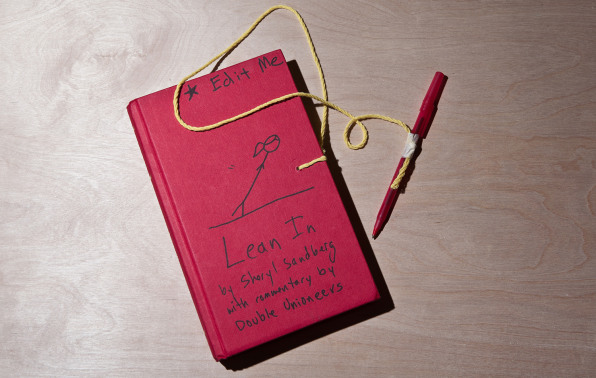 ★ Edit Me
Lean In
by Sheryl Sandberg
with commentary by
Double Unioneers.